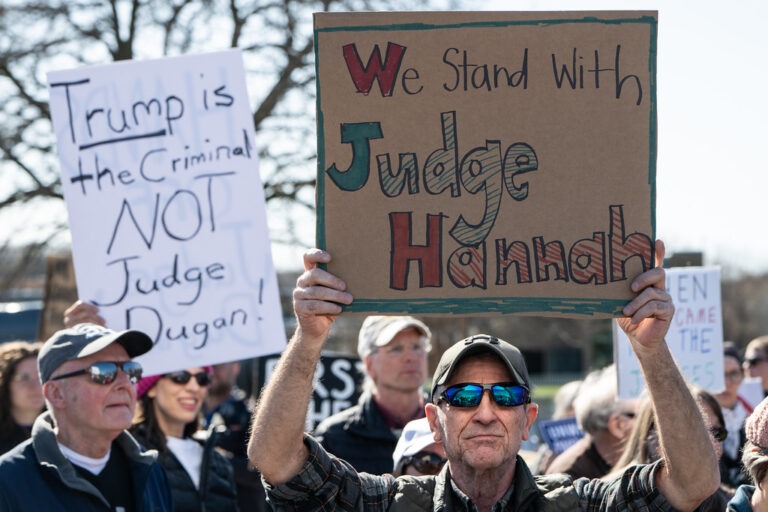 Trump is
the Criminal
NOT
Judge
Dugan!
We Stand With
Judge
Hannah
CAME
THE